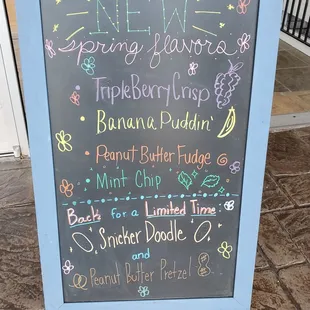 NEW
spring flavors
Triple Berry Crisp
Banana Puddin'
Peanut Butter Fudge
Mint Chip
Back for a Limited Time:
Snicker Doodle
and
Peanut Butter Pretzel